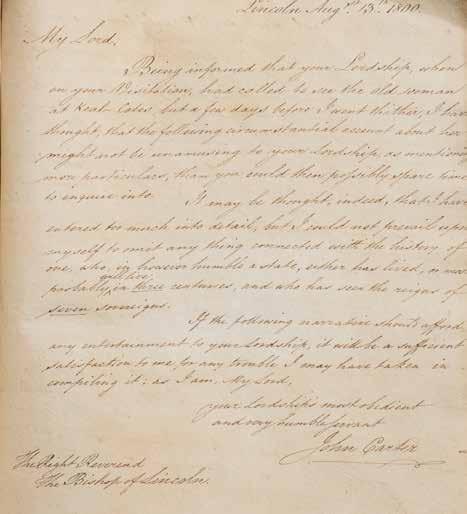 Lincoln Aug.st 13.th 1800.
My Lord,
Being informed that your Lordship, when
on your Visitation, had called to see the old woman
at Keal Cotes, but a few days before I went thither, I have
thought, that the following circumstantial account about her
might not be unamusing to your Lordship, as mention
more particulars, than you could then possibly spare time
to enquire into.
It may be thought, indeed, that I have
entered too much into detail, but I could not prevail upon
myself to omit any thing connected with the history of
one, who, in however humble a state, either has lived, or
probably in three centuries, and who has seen the reigns of
seven sovereigns.
If the following narrative should afford
any entertainment to your Lordship, it will be a sufficient
satisfaction to me for any trouble I may have taken in
compiling it: as I am, My Lord,
your Lordship's most obedient
and very humble servant
John Carter
The Right Reverend
The Bishop of Lincoln.